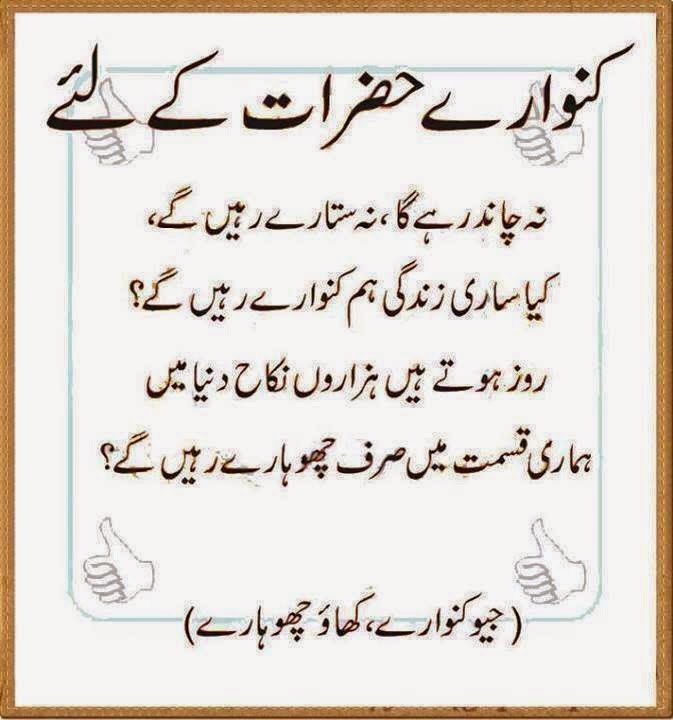 کنوارے حضرات کے لئے
نہ چاند رہے گا، نہ ستارے رہیں گے،
کیا ساری زندگی ہم کنوارے رہیں گے؟
روز ہوتے ہیں ہزاروں نکاح دنیا میں
ہماری قسمت میں صرف چھوہارے رہیں گے؟
(جیو کنوارے، کھاؤ چھوہارے)